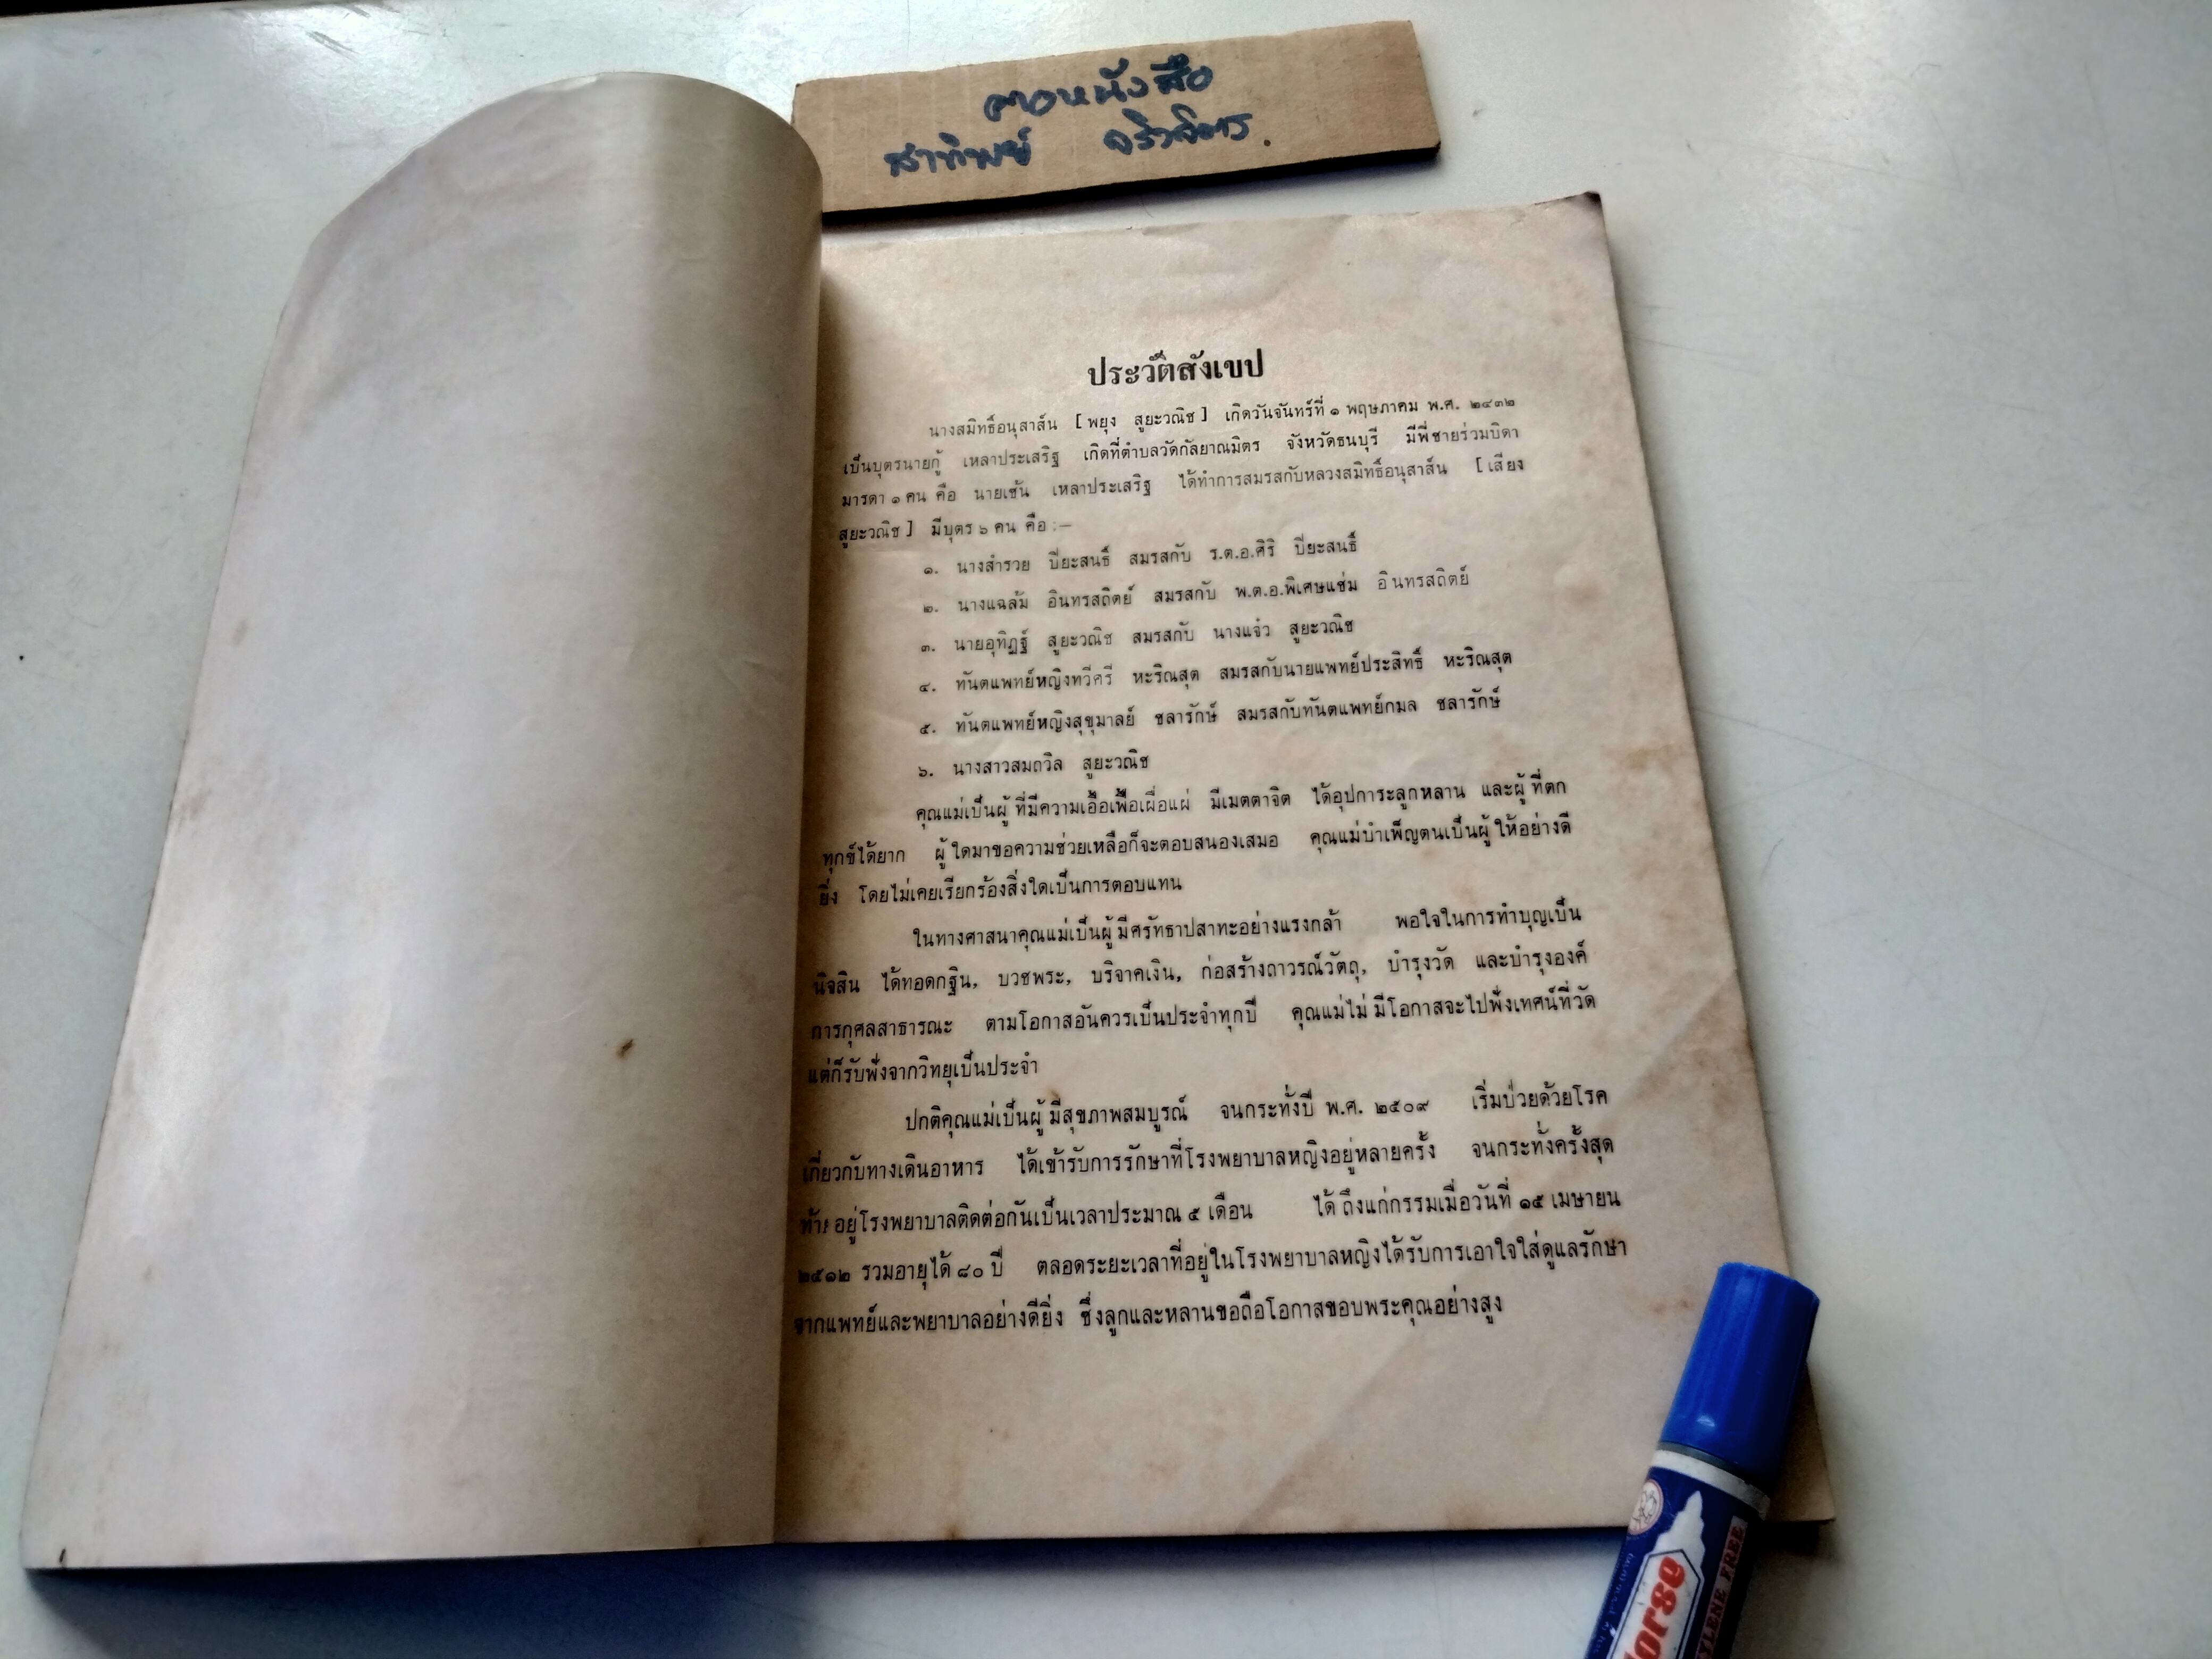 คอหนังสือ
สาทิพย์ จริวจิตร.
ประวัติสังเขป
นางสมิทธิ์อนุสาส์น [ พยุง สูยะวณิช ] เกิดวันจันทร์ที่ ๑ พฤษภาคม พ.ศ. ๒๔๓๒
เป็นบุตรนายกู้ เหลาประเสริฐ เกิดที่ตำบลวัดกัลยาณมิตร จังหวัดธนบุรี มีพี่ชายร่วมบิดา
มารดา ๑ คน คือ นายเซ้น เหลาประเสริฐ ได้ทำการสมรสกับหลวงสมิทธิ์อนุสาส์น [ เสียง
สูยะวณิช ] มีบุตร ๖ คน คือ :—
๑. นางสำรวย ปิยะสนธิ์ สมรสกับ ร.ต.อ.ศิริ ปิยะสนธิ์
๒. นางแฉล้ม อินทรสถิตย์ สมรสกับ พ.ต.อ.พิเศษแช่ม อินทรสถิตย์
๓. นายอุทิฏฐ์ สูยะวณิช สมรสกับ นางแจ๋ว สูยะวณิช
๔. ทันตแพทย์หญิงทวีศรี หะริณสุต สมรสกับนายแพทย์ประสิทธิ์ หะริณสุต
๕. ทันตแพทย์หญิงสุขุมาลย์ ชลารักษ์ สมรสกับทันตแพทย์กมล ชลารักษ์
๖. นางสาวสมถวิล สูยะวณิช
คุณแม่เป็นผู้ที่มีความเอื้อเฟื้อเผื่อแผ่ มีเมตตาจิต ได้อุปการะลูกหลาน และผู้ที่ตก
ทุกข์ได้ยาก ผู้ใดมาขอความช่วยเหลือก็จะตอบสนองเสมอ คุณแม่บำเพ็ญตนเป็นผู้ให้อย่างดี
ยิ่ง โดยไม่เคยเรียกร้องสิ่งใดเป็นการตอบแทน
ในทางศาสนาคุณแม่เป็นผู้มีศรัทธาปสาทะอย่างแรงกล้า พอใจในการทำบุญเป็น
นิจสิน ได้ทอดกฐิน, บวชพระ, บริจาคเงิน, ก่อสร้างถาวรณ์วัตถุ, บำรุงวัด และบำรุงองค์
การกุศลสาธารณะ ตามโอกาสอันควรเป็นประจำทุกปี คุณแม่ไม่มีโอกาสจะไปฟังเทศน์ที่วัด
แต่ก็รับฟังจากวิทยุเป็นประจำ
ปกติคุณแม่เป็นผู้มีสุขภาพสมบูรณ์ จนกระทั่งปี พ.ศ. ๒๕๐๙ เริ่มป่วยด้วยโรค
เกี่ยวกับทางเดินอาหาร ได้เข้ารับการรักษาที่โรงพยาบาลหญิงอยู่หลายครั้ง จนกระทั่งครั้งสุด
ท้าย อยู่โรงพยาบาลติดต่อกันเป็นเวลาประมาณ ๕ เดือน ได้ถึงแก่กรรมเมื่อวันที่ ๑๕ เมษายน
๒๕๑๒ รวมอายุได้ ๘๐ ปี ตลอดระยะเวลาที่อยู่ในโรงพยาบาลหญิงได้รับการเอาใจใส่ดูแลรักษา
จากแพทย์และพยาบาลอย่างดียิ่ง ซึ่งลูกและหลานขอถือโอกาสขอบพระคุณอย่างสูง